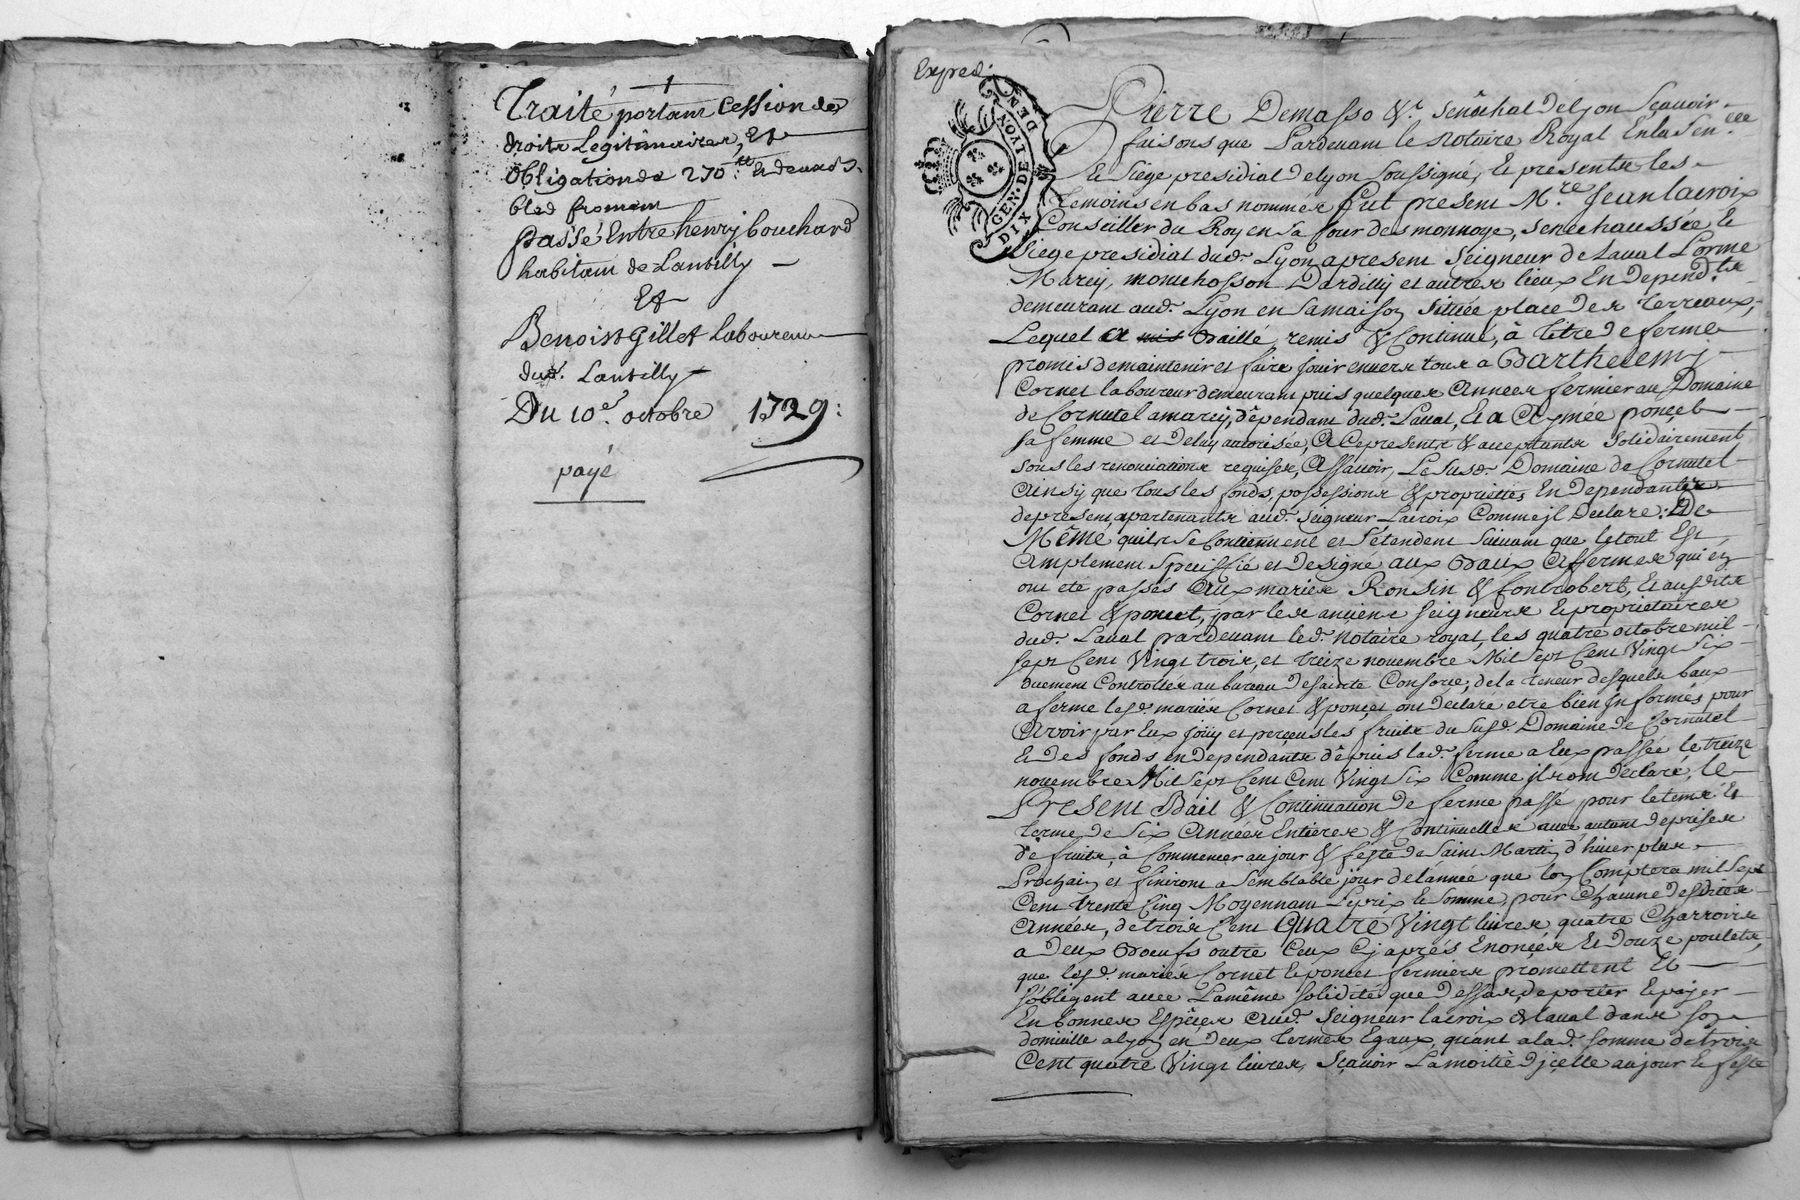 Traité portant Cession de
droits Legitimaires, Et
obligation de 270.tt
bled froment
passé Entre henry bouchard
habitant de Lantilly
Et
Benoist Gillet laboureur
dud. Lantilly
Du 10e. octobre 1729:
payé
Exped.
GEN. DE LYON
DIX DEN
Pierre Demasso &c. senêchal de lyon scavoir
faisons que Pardevant le Notaire Royal En la Sen.cée
Et siege presidial de lyon soussigné, et presents les
temoins en bas nommés fut present M.re Jean lacroix
Conseiller du Roy en sa Cour des monnoye, senechaussée, et
siege presidial dud. Lyon apresent seigneur de Laval Lorme
Marcy, montchosson Dardilly et autres lieux En Depend.ts
demeurant aud. Lyon en sa maison sittüée place des terreaux,
Lequel a mis Baillé, remis & Continué, à titre de ferme
promis de maintenir et faire Joüir envers tous a Barthelemy
Cornet laboureur demeurant puis quelques Années fermier au Domaine
de Cornutel a marcy, dépendant dud. Laval, Et a Aymée ponçet
sa femme et de luy autorisée, A Ce presents & acceptants solidairement
sous les renonciations requises, Assavoir, Le susd. Domaine de Cornutel
Ainsy que tous les fonds, possessions & proprietés En Dependantes
de present apartenants aud. seigneur Lacroix Comme jl Declare; De
Même quils se Contiennent et s'étendent suivant que le tout Est
Amplement Speciffié et Designé aux Baux Affermes qui en
ont eté passés Aux mariés Ronsin & fontrobert, Et ausdits
Cornet & poncet, par les anciens seigneurs & proprietaires
dud. Laval pardevant led. Notaire royal, les quatre octobre mil
sept Cent Vingt trois, et treize novembre Mil sept Cent Vingt six
duement Controllés au bureau de sainte Consorce; de la teneur desquels baux
a ferme lesd. mariés Cornet & ponçet ont declaré etre bien Informés pour
Avoir par Eux joüy et perçeus les fruits du susd. Domaine de Cornutel
Et des fonds en dependants dépuis lad. ferme a Eux passée le treize
novembre Mil sept Cent Cent Vingt six Comme jls ont declaré, le
Present Bail & Continuation de ferme passé pour le tems Et
terme de six Années Entieres & Continuelles avec autant de prises
de fruits, à Commencer au jour & feste de saint Martin d'hiver plus
Prochain et finiront a semblable jour de lannée que lon Comptera mil sept
Cent trente Cinq Moyennant Leprix & somme, pour Chacune desdites
Années, de trois Cent Quatre Vingt livres quatre Charrois
a Deux Boeufs outre Ceux Cy après Enoncés Et Douze poulets,
que lesd. mariés Cornet & poncet fermiers promettent Et
s'obligent avec La même solidité que dessus, de porter & payer
En bonnes Espèces Aud. seigneur lacroix & laval dans son
domicille a lyon en deux termes Egaux, quant a lad. somme de trois
Cent quatre Vingt livres, sçavoir La moitié d'jcelle au jour & feste